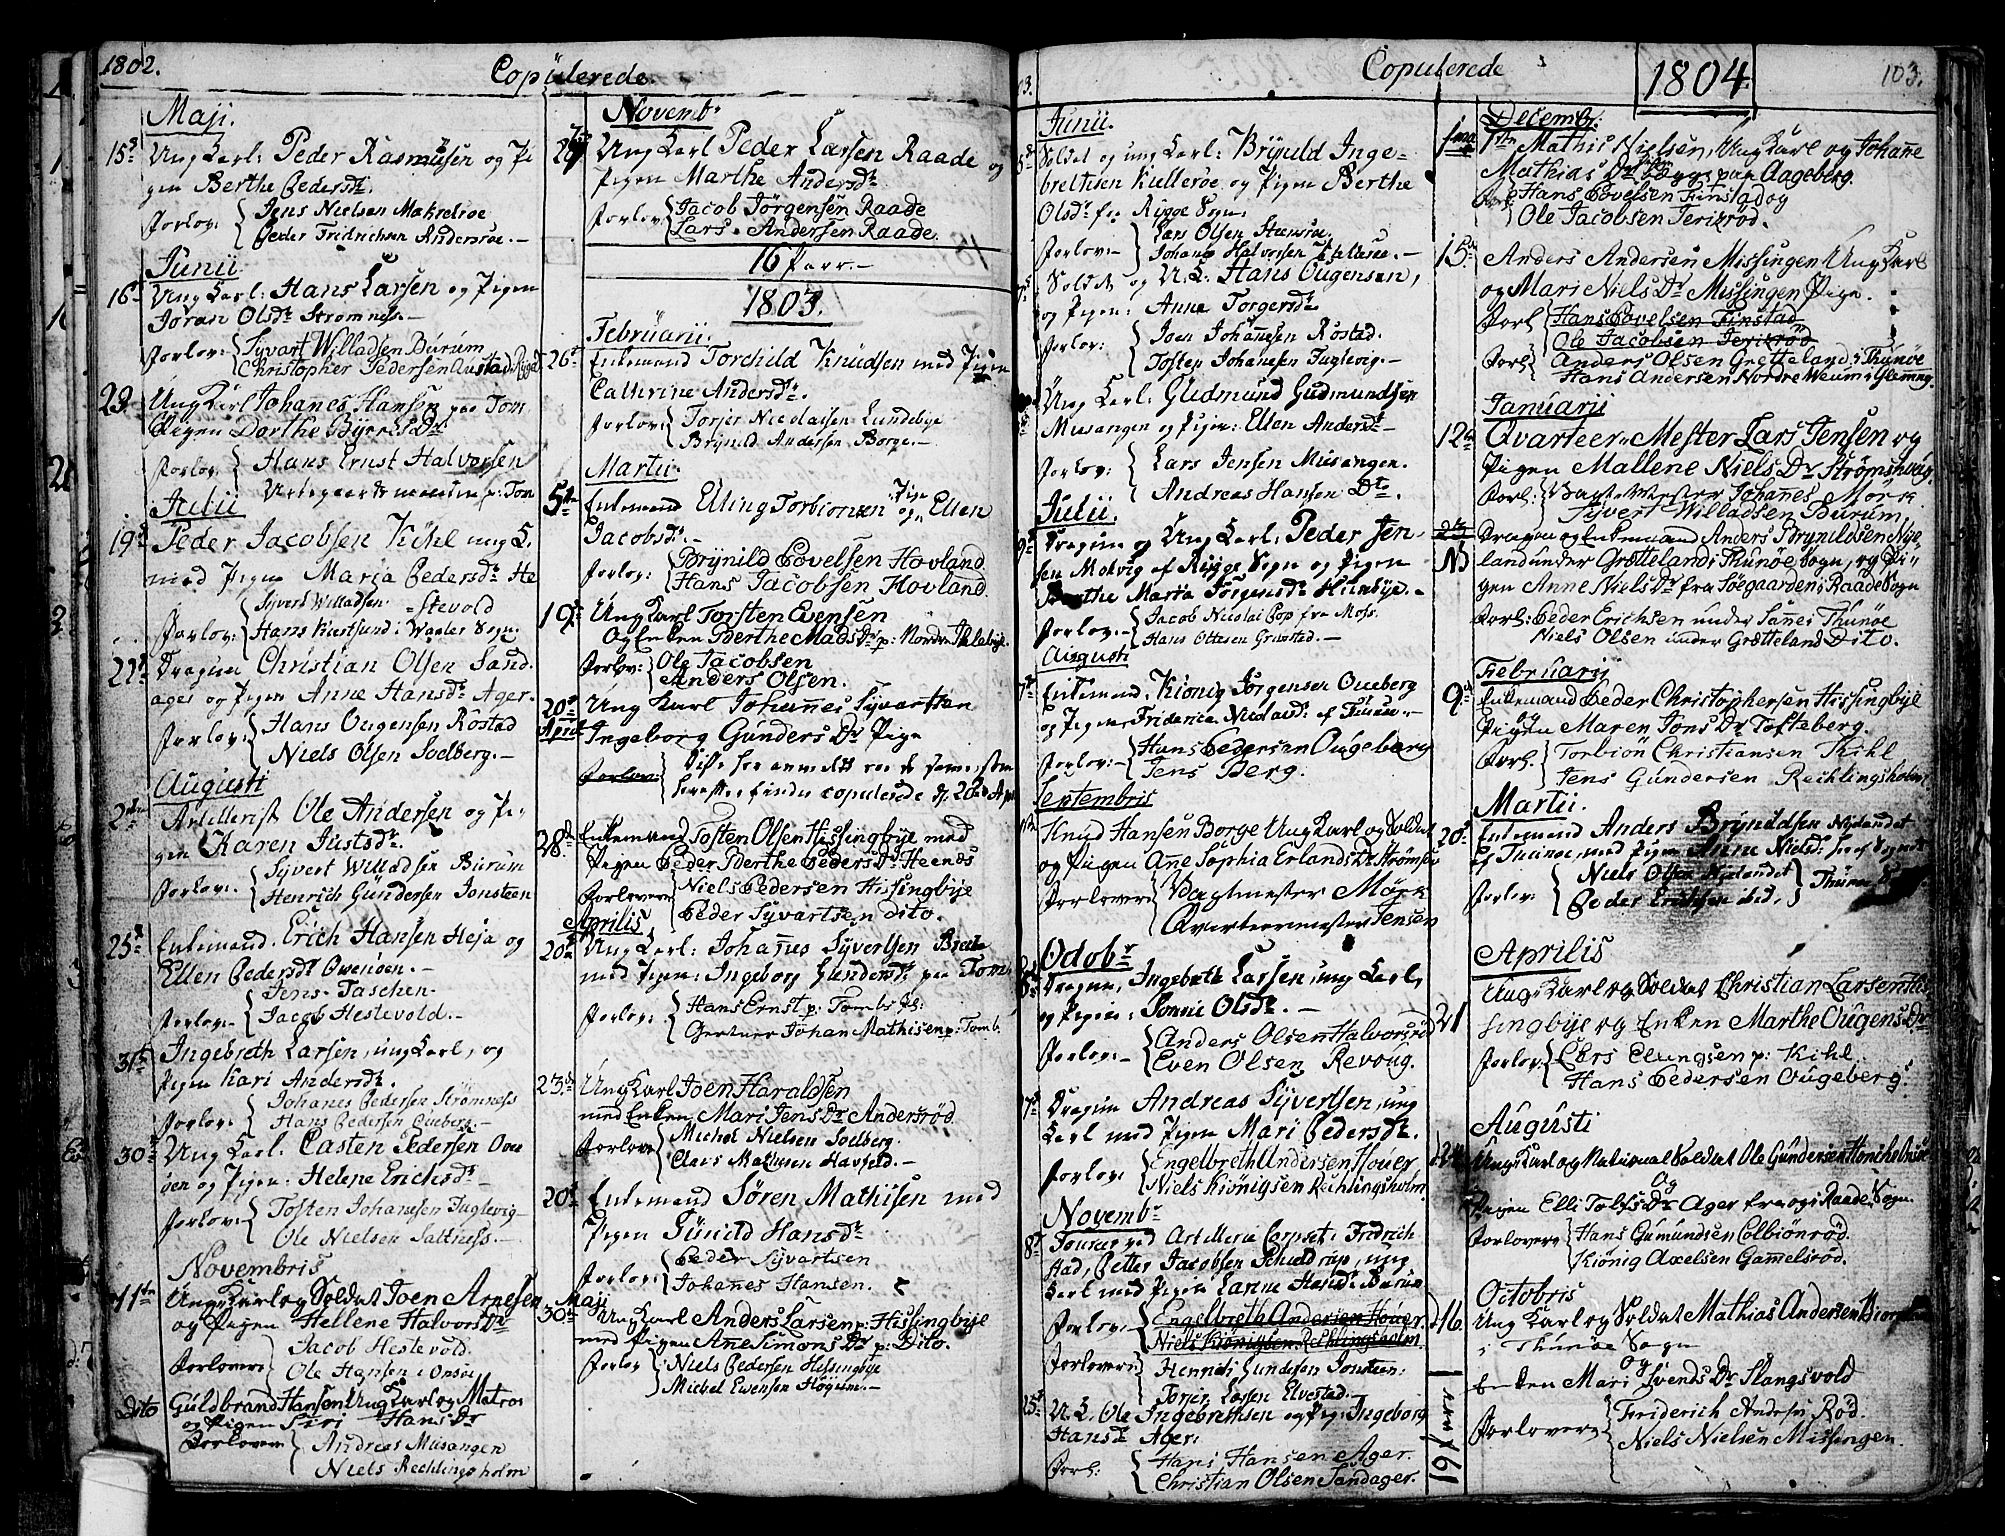 1802.
Copulerede.
Maji.
15d Ung Karl: Peder Rasmusen og Pi
gen Berthe Pedersdr.
Forlov: Jens Nielsen Makrelroe
Peder Fridrichsen Andersrøe.
Junii
16 Ung Karl: Hans Larsen og Pigen
Joran Olsdr Strømnes.
Forlov: Syvart Willadsen Burum
Christopher Pedersen Austad Rygge
29. Ung Karl Johanes Hansen paa Tom
Pigen Dorthe Byrresdr
Forlov: Hans Ernst Halvorsen
Urtegaardsmanden p: Tom
Julii
19d Peder Jacobsen Kihl ung K.
med Pigen Maria Pedersdr He
stevold
Forlov: Syvert Willadsen
Hans Kiertsund i Waaler Sogn.
22d Dragun Christian Olsen Sand
ager og Pigen Anne Hansdr Ager.
Forlov: Hans Ougensen Rostad
Niels Olsen Soelberg.
Augusti
2den Artillerist Ole Andersen og Pi
gen Karen Justsdr
Forlov: Syvert Willadsen Burum
Henrich Gundersen Jonsteen
25d Enkemand Erich Hansen Heja og
Ellen Pedersdr Owenøen.
Forlov: Jens Taschen
Jacob Hestevold.
31t Ingebreth Larsen, ung Karl, og
Pigen Kari Andersdr.
Forlov: Johanes Pedersen Strømness
Hans Pedersen Oueberg.
30 Ung Karl. Casten Pedersen Ove
øen og Pigen: Helene Erichsdr
Forlov: Tosten Johansen Fuglevig
Ole Nielsen Saltness.
Novembris
11te Ung Karl og Soldat Joen Arnesen
og Pigen Hellene Halvorsdr
Forlovere Jacob Hestevold.
Ole Hansen i Onsøe
Dito Guldbrand Hansen Ung Karl og Matros
og Pigen Siri Hansdr
Forlovere Andreas Musangen
Niels Rechlingsholm
Novembr
Ung Karl Peder Larsen Raade og
Pigen Marthe Andersdr
Forlov: Jacob Jørgensen Raade
Lars Andersen Raade.
16 Parr.
1803.
Februarii.
26 Enkemand Torchild Knudsen med Pigen
Cathrine Andersdr.
Forlov: Torjer Nicolaisen Lundebye
Brynild Andersen Borge.
Martii
5te Enkemand Elling Torbionsen og Pigen Ellen
Jacobsdr.
Forlov: Brynild Povelsen Hovland
Hans Jacobsen Hovland
19d Ung Karl Torsten Evensen
Og Enken Berthe Madsdr p: Nordre
Forlov: Ole Jacobsen
Anders Olsen.
20d Ung Karl Johannes Syvertsen
April Ingeborg Gundersdr Pige
Forlov:
copulerede d: 20de Apr
28d Enkemand Tosten Olsen Hissingbye med
Pigen Peder Berthe Pedersdr Heenes
Forlovere Niels Pedersen Hissingbye
Peder Syvartsen dito.
Aprilis
20d Ung Karl: Johanes Syvertsen
med Pigen: Ingeborg Gundersdr paa Tom
Forlov: Hans Ernst p: Tomb
Gartner Johan Mathisen p: Tomb
23d Ung Karl Joen Haraldsen
med Enken Mari Jensdr Andersrød
Forlovere Michel Nielsen Soelberg.
Claus Mathisen Havfeld.
20d Enkemand Søren Mathisen med
Pigen Gunild Hansdr
Forlov: Peder Syvartsen
Johanes Hansen.
Maji
30 Ung Karl Anders Larsen p: Hissingbye
med Pigen Anne Simonsdr p: Dito.
Forlov Niels Pedersen Hissingbye
Michel Evensen Høyum.
Copulerede
1804
103.
Junii
Soldat og ung Karl: Brynild Inge=
bretsen Kullerøe og Pigen Berthe
Olsdr fra Rigge Sogn,
Forlov: Lars Olsen
Johanes Halvorsen
Soldt og U.K. Hans Ougensen,
og Pigen: Anne Torgersdr
Forlov: Joen Johannesen Rostad.
Tosten Johansen Fuglevig.
Ung Karl: Gudmund Gudmundsen
Musangen og Pigen: Ellen Andersdr
Forlov: Lars Jensen Musangen.
Andreas Hansen Dto.
Julii
9d Dragun og Ung Karl: Peder Jen
sen Molvig af Rygge Sogn og Pigen
Berthe Maria Jørgensdr Huusbye.
Forlov: Jacob Nicolai Pop fra Moss.
Hans Ottesen Grimstad.
Augusti
7d Enkemand, Kiønig Jørgensen Oueberg
og Pigen Friderica Nicolaisdr af Thunøe.
Forlov: Hans Pedersen Ougeberg
Jens Berg.
Septembris
Knud Hansen Borge Ung Karl og Soldat
og Pigen Ane Sophia Erlandsdr Strømsøe
Forlovere Vagtmester Mørk
Qvarteermester Jensen
Octobr
Dragun, Ingebreth Larsen, ung Karl,
og Pigen: Tonni Olsdr.
Forlov: Anders Olsen Halvorsrød
Even Olsen Revoug.
7d Dragun Andreas Syvertsen, ung
Karl med Pigen Mari Pedersdr.
Forlov: Engelbreth Andersen Houer
Niels Kiønigsen Rechlingsholm
Novembr
8d Fourer ved Artillerie Corpset i Fridrich
stad, Petter Jacobsen Schieldrup, ung
Karl med Pigen Karine Hansdr Burum
Forlov: Engelbreth Andersen Houer
Niels Kiønigsen Rechlingsholm
Forlovere: Henrich Gundersen Jonsteen:
Torjer Larsen Elvestad.
25d U.K. Ole Ingebrethsen og Pig: Ingeborg
Hansdr Ager.
Forl: Hans Hansen Ager.
Christian Olsen Sandager.
Decembr:
Mathis Nielsen, Ung Karl og Johane
Mathias Dr begge paa Aageberg.
Forl Hans Povelsen Finstad og
Ole Jacobsen Jerikrød.
15d Anders Andersen Missingen Ung Karl
og Mari Niels Dr Missingen Pige.
Forl Hans Povelsen Finstad
Ole Jacobsen Jerikrød
Forl Anders Olsen Grettеland i Thunøe
Hans Andersen Nordre Weum i Glemmg.
Januarii
12te Qvarteer Mester Lars Jensen og
Pigen Mallene Niels Dr Strømshoug
Forl: Vagt Mester Johanes Mørk
Syvert Willadsen Burum,
N Dragun og Enkemand Anders Brynildsen Nye
land under Grætteland i Thunøe Sogn, og Pi
gen Anne Niels Dr fra Søegaarden i Raade Sogn
Forl: Peder Erichsen under Sanne i Thunøe
Niels Olsen under Grætteland Dito.
Februarij
9d Enkemand Peder Christophersen Hissingbye
og Pigen Maren Jons Dr Tofteberg.
Forl. Torbiøn Christiansen Kihl
Jens Gundersen Rechlingsholm
Martii.
20d Enkemand Anders Brynildsen Nylandet
af Thunøe, med Pigen Anne Nielsdr her af Sognet
Forlov: Niels Olsen Nylandet
Peder Erichsen ibid. Thunøe S
Aprilis
21 Ung Karl og Soldat Christian Larsen His
singbye og Enken Marthe Ougens Dr
Forlov: Lars Elungsen p: Kihl.
Hans Pedersen Ougeberg.
Augusti
d 24 Ung Karl og National Soldat Ole Gundersen
og
Pigen Elli Tolfs Dr Ager fra og i Raade Sogn.
Forlovere Hans Gumundsen Colbiønrød.
Kiønig Axelsen Gammelsrød.
Octobris
d 16 Ung Karl og Soldat Mathias Andersen
i Thunøe Sogn
og
Enken Mari Svends Dr Slangsvold
Forlovere Friderich Andersen Rød
Niels Nielsen Missingen.
19 parr